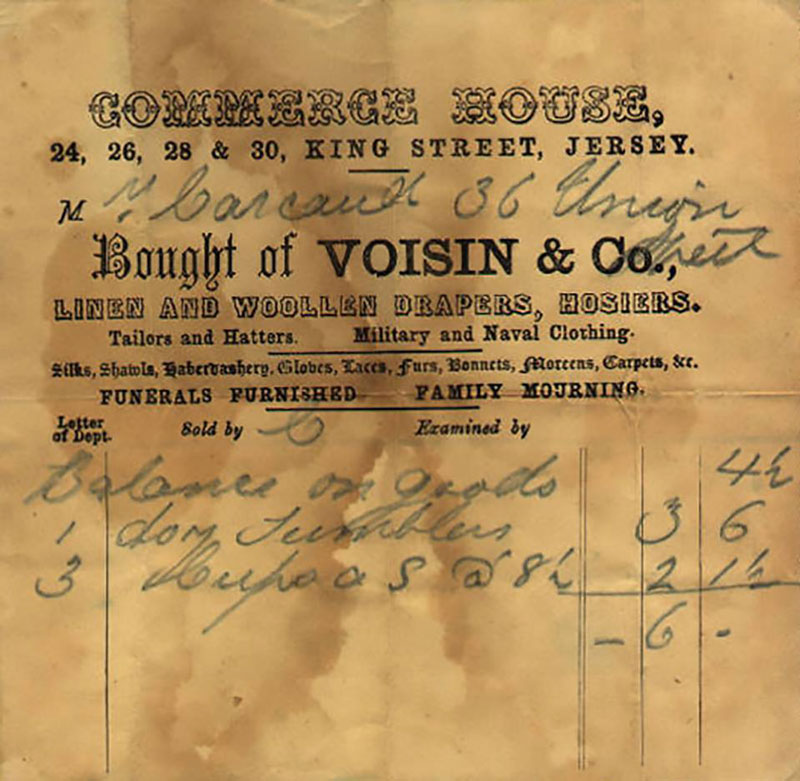 COMMERCE HOUSE,
24, 26, 28 & 30, KING STREET, JERSEY.
M r Carcaud 36 Union
Street
Bought of VOISIN & Co.,
LINEN AND WOOLLEN DRAPERS, HOSIERS.
Tailors and Hatters. Military and Naval Clothing.
Silks, Shawls, Haberdashery, Gloves, Laces, Furs, Bonnets, Moreens, Carpets, &c.
FUNERALS FURNISHED FAMILY MOURNING.
Letter of Dept. Sold by C Examined by
Balance on goods 4½
1 doz Tumblers 3 6
3 Cups & S @ 8½ 2 1½
- 6 -